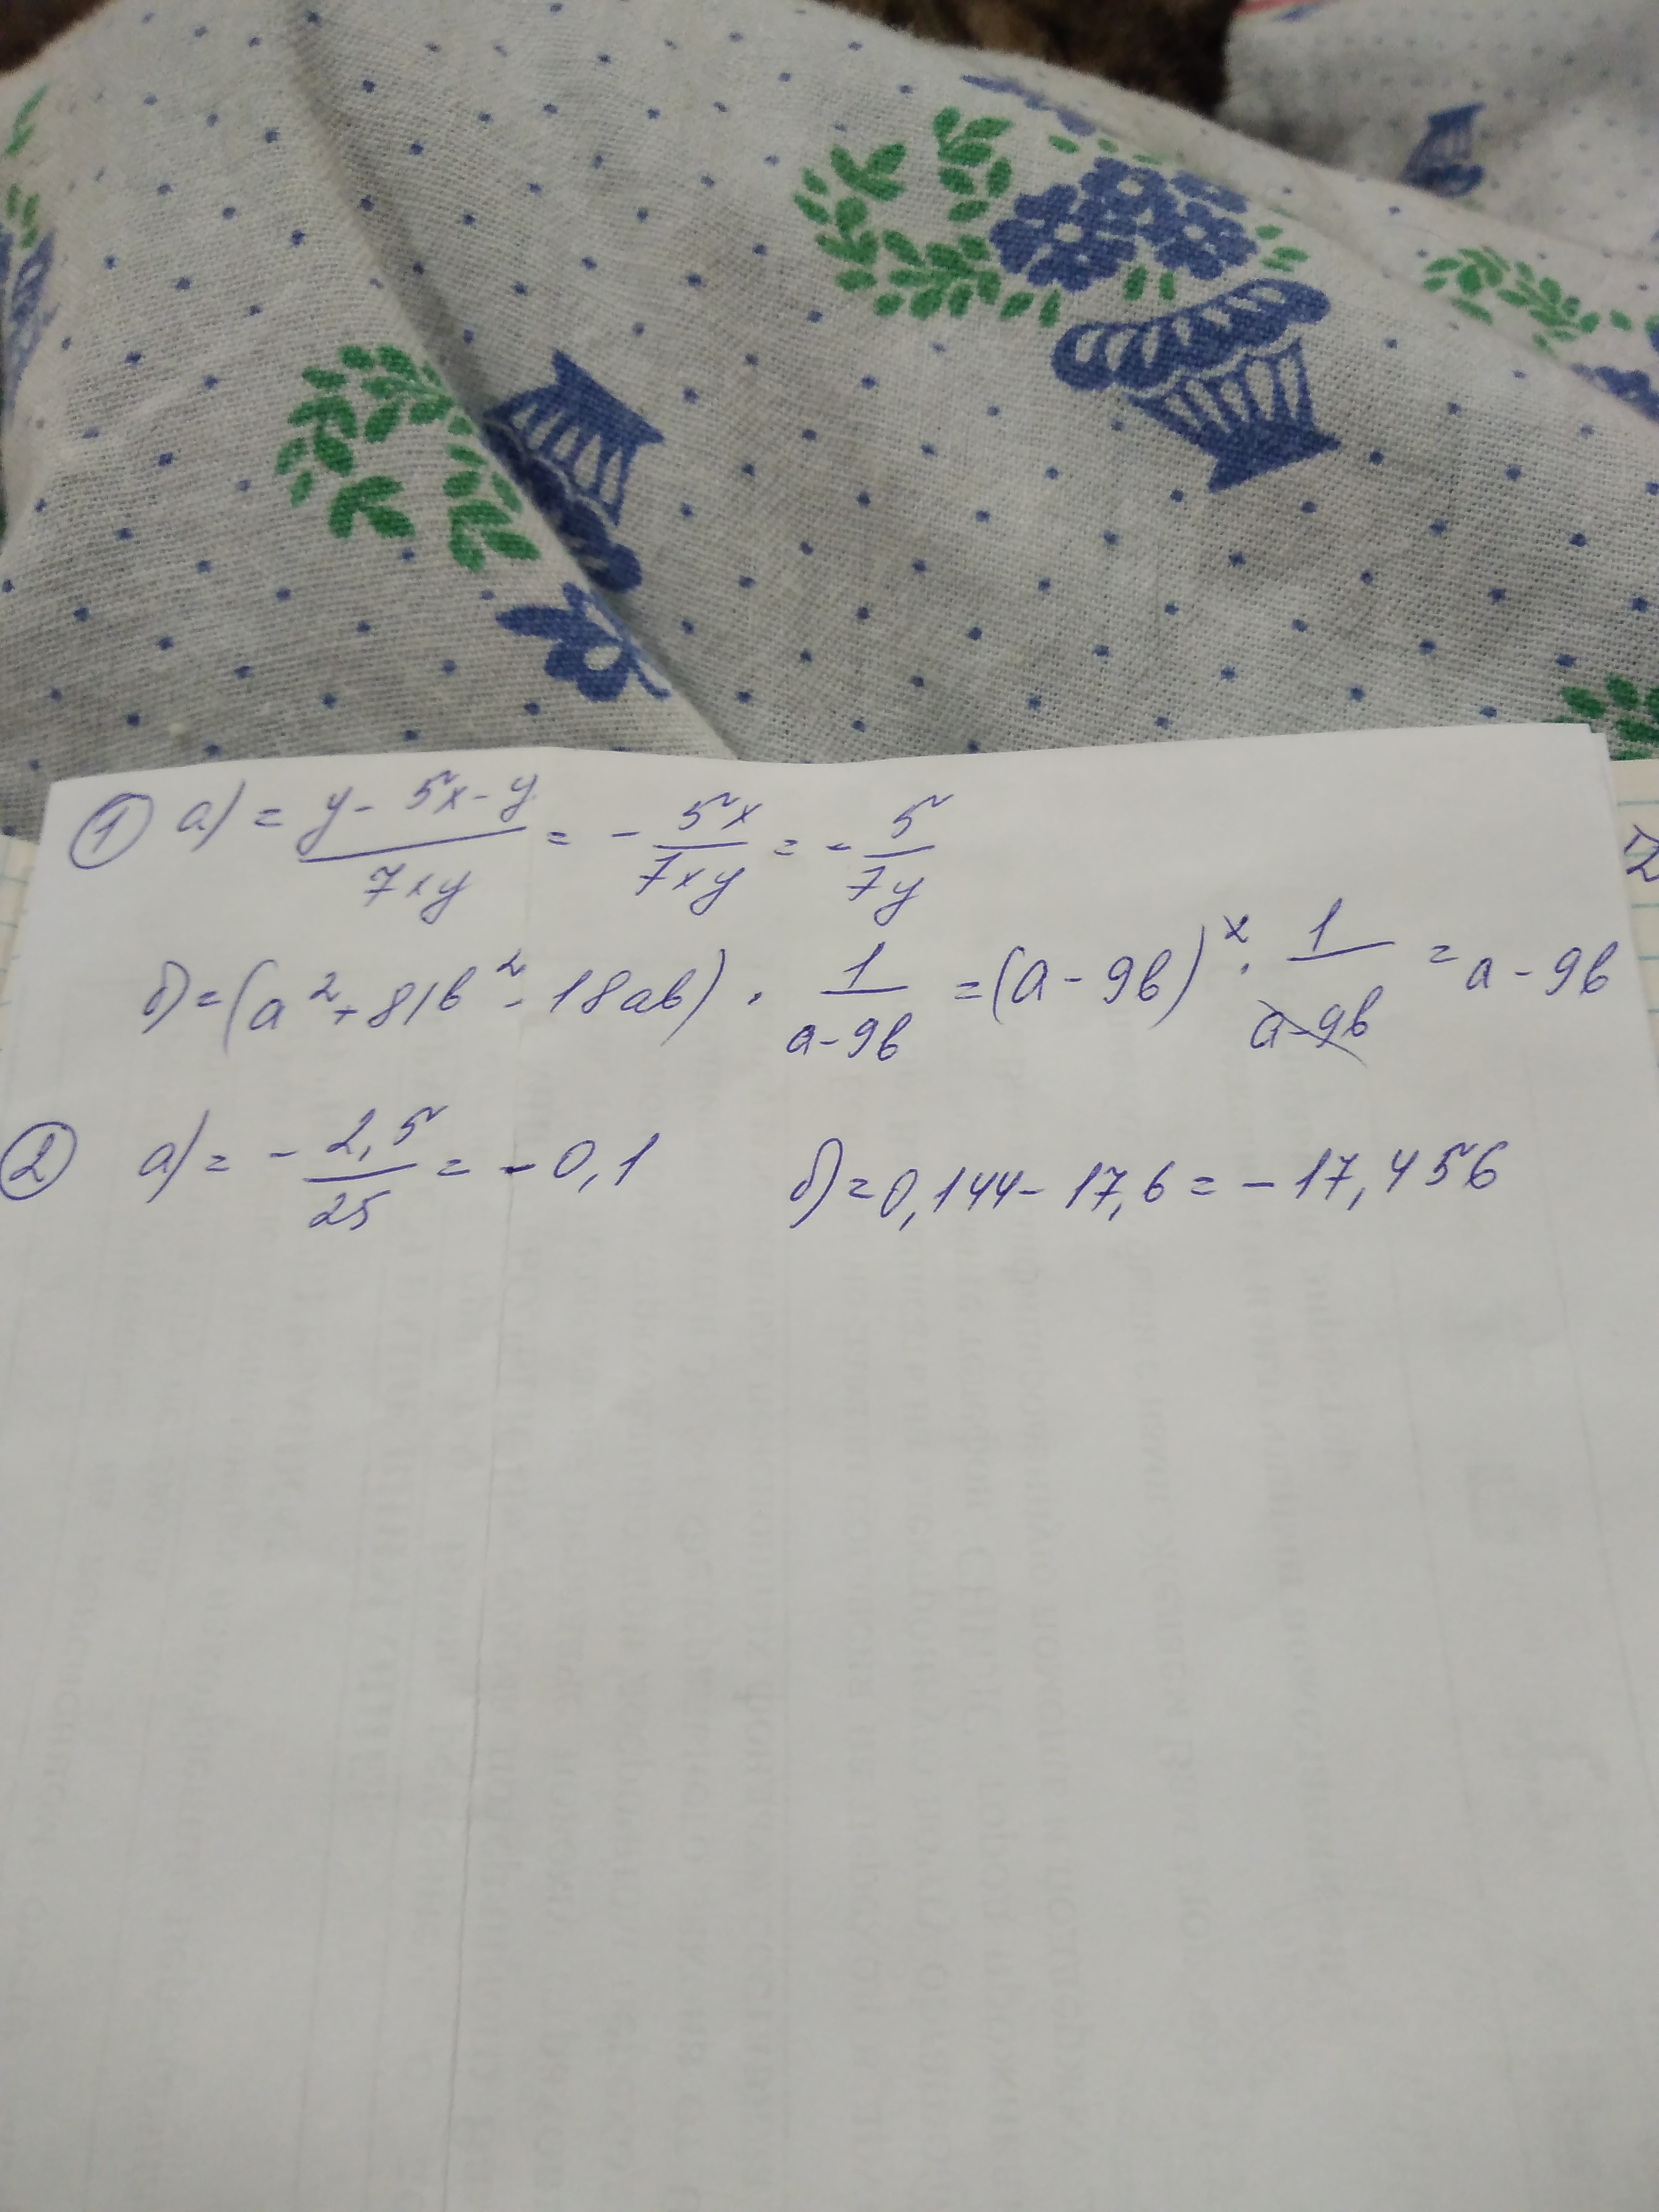 ① а) = (y - 5x - y)/(7xy) = - 5x/(7xy) = - 5/(7y)
б) = (a² + 81b² - 18ab) · 1/(a-9b) = (a - 9b)² · 1/(a-9b) = a - 9b
② а) = - 2,5/25 = - 0,1 б) = 0,144 - 17,6 = - 17,456